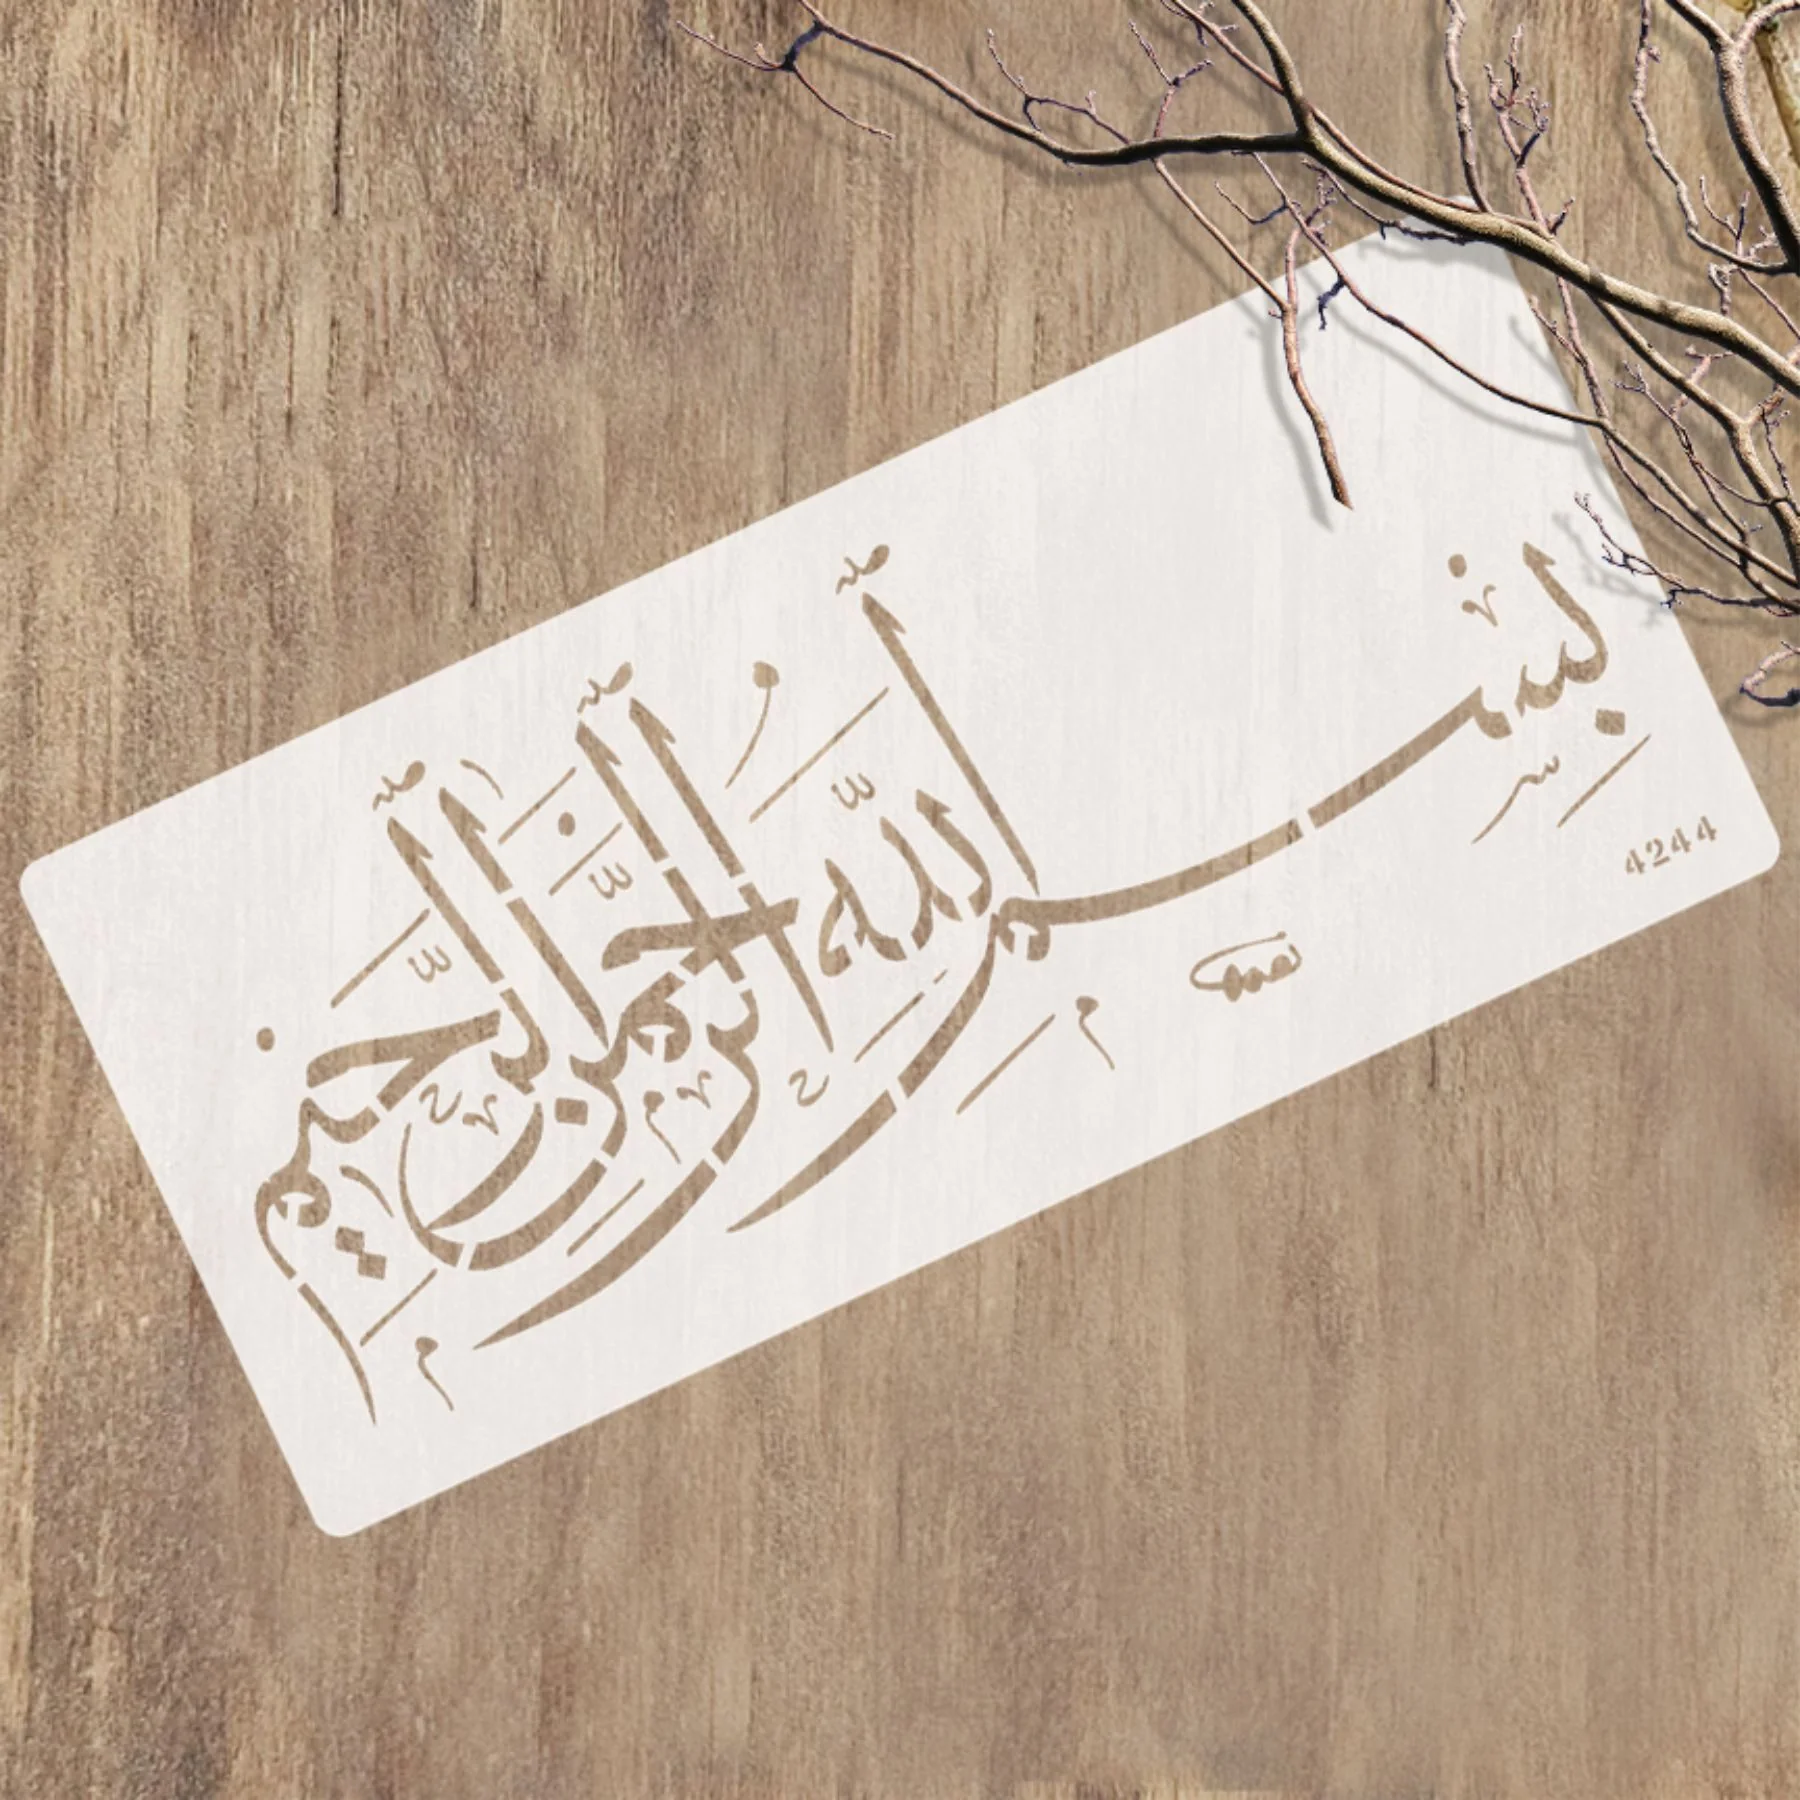 بِسْمِ اللَّهِ الرَّحْمَٰنِ الرَّحِيمِ
4244